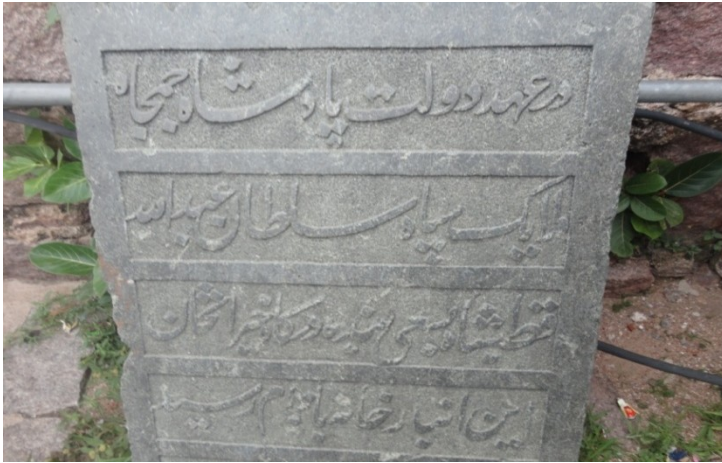 در عهد دولت پادشاه جمجاه
ملایک سپاه سلطان عبدالله
قطبشاه بسعی بنده درگاه خیراتخان
این انبارخانه باتمام رسید